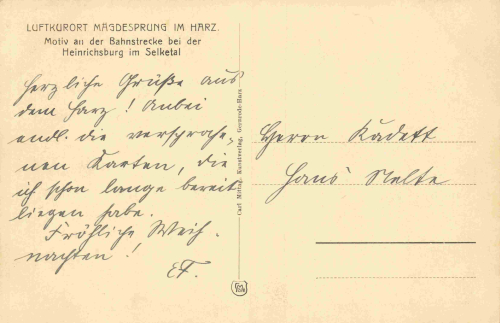 LUFTKURORT MÄGDESPRUNG IM HARZ.
Motiv an der Bahnstrecke bei der
Heinrichsburg im Selketal
Herzliche Grüße aus
dem Harz! Anbei
endl. die versproche-
nen Karten, die
ich schon lange bereit
liegen habe.
Fröhliche Weih-
nachten!
EF.
Carl Mittag, Kunstverlag, Gernrode-Harz
Herrn Kadett
Hans Nelte